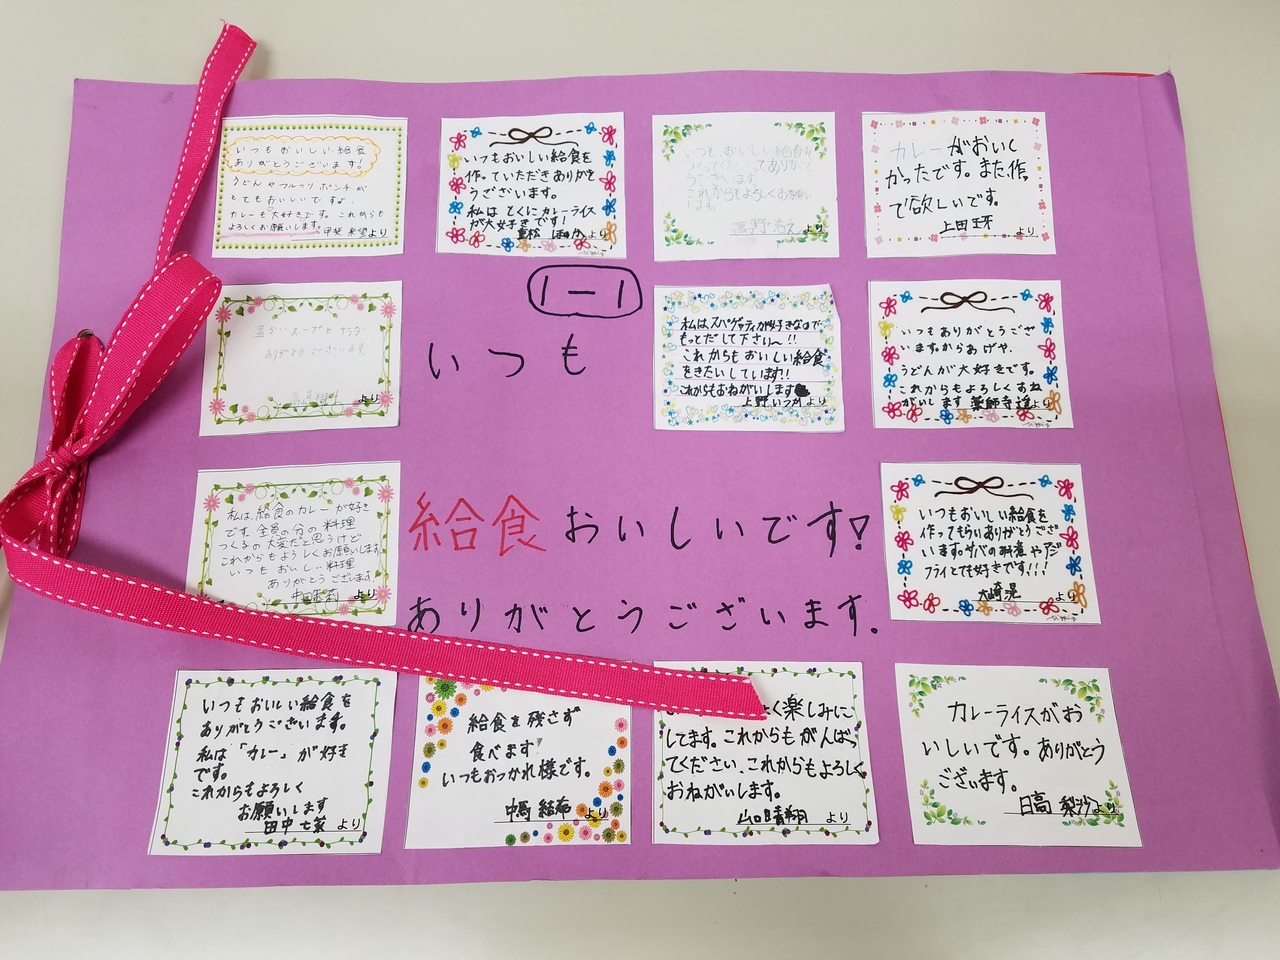 いつもおいしい給食
ありがとうございます!
うどんやフルーツポンチが
とてもおいしいですよ
カレーも大好きです。これからも
よろしくお願いします。
より
いつもおいしい給食を
作っていただきありがと
うございます。
私はとくにカレーライス
が大好きです!
重松 より
いつもおいしい給食を
つくってくださってありがと
うございます
これからもよろしくお願い
します。
より
カレーがおいし
かったです。また作っ
て欲しいです。
上田 より
1-1
いつも
給食おいしいです!
ありがとうございます.
温かいスープとサラダ
ありがとうございます。
より
私はスパゲッティが好きなので
もっとだして下さい〜!!
これからもおいしい給食
をきたいしています!!
これからもおねがいします
上野いつかより
いつもありがとうござ
います。からあげや、
うどんが大好きです。
これからもよろしくおね
がいします 薬師寺 より
私は、給食のカレーが好き
です。全員の分の料理
つくるの大変だと思うけど
これからもよろしくお願いします。
いつもおいしい料理
ありがとうございます。
中田 より
いつもおいしい給食を
作ってもらいありがとうござ
います。サバの 煮やアジ
フライとても好きです!!!
大崎 より
いつもおいしい給食を
ありがとうございます。
私は「カレー」が好き
です。
これからもよろしく
お願いします
田中七菜 より
給食を残さず
食べます
いつもおつかれ様です。
中馬 結希 より
く楽しみに
してます。これからもがんばっ
てください、これからもよろしく
おねがいします。
山口晴翔 より
カレーライスがお
いしいです。ありがとう
ございます。
日高 梨沙より